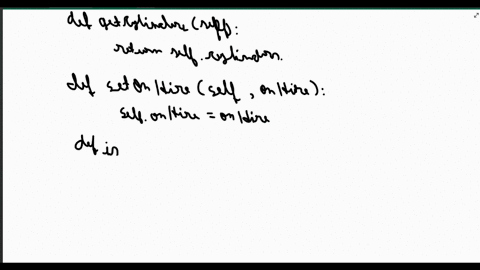 def getCylinders(self):
return self.cylinders.
def setOnHire(self, onHire):
self.onHire = onHire
def is